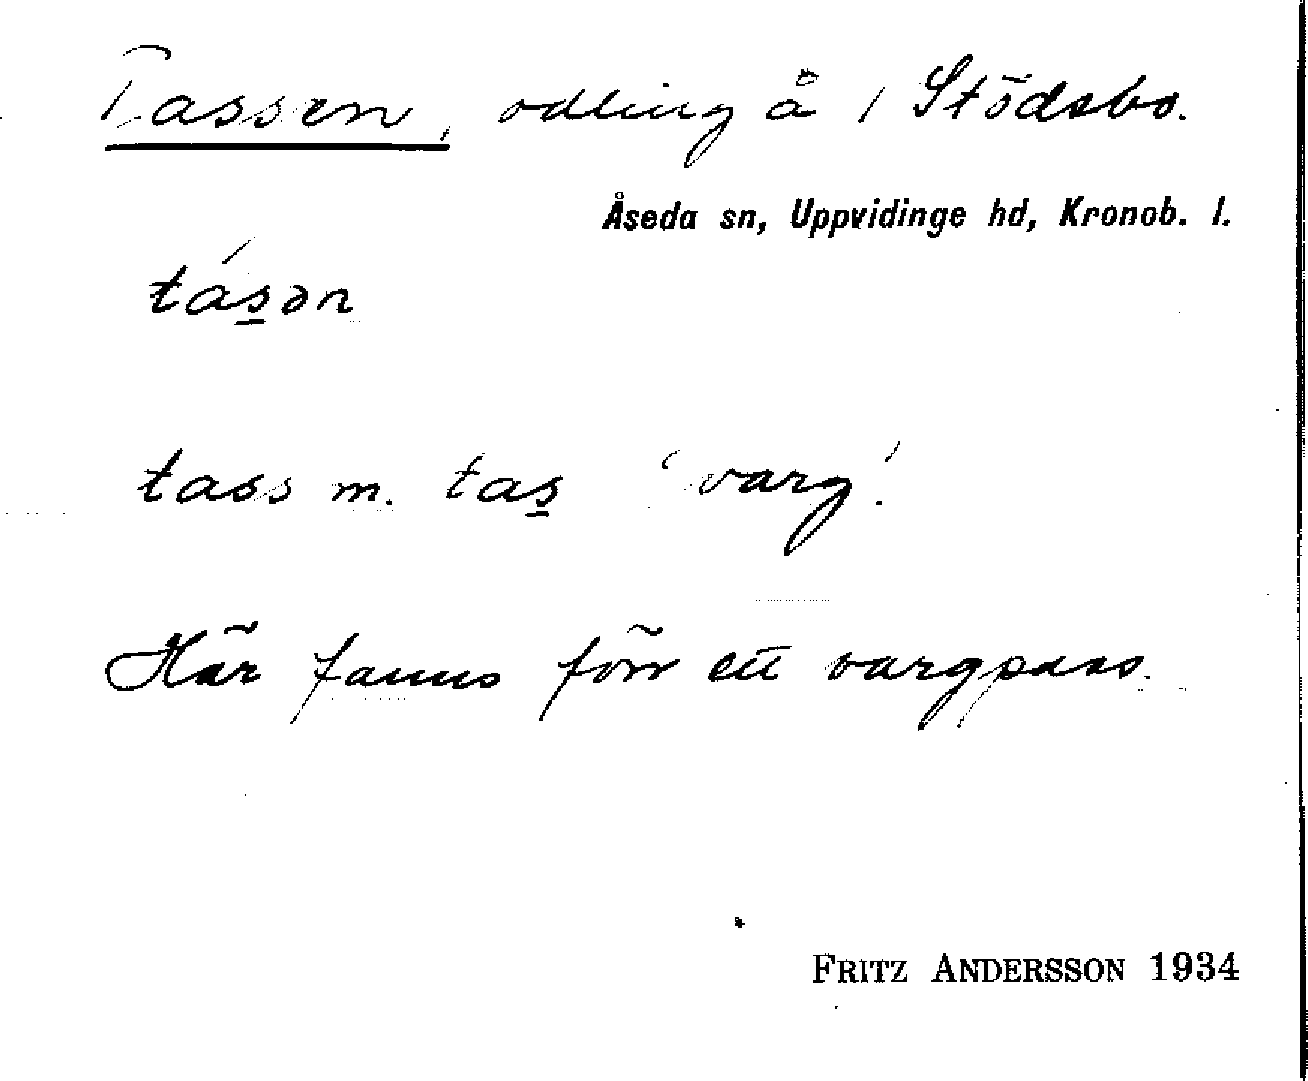 Tassen, odling å 1 Stödsbo.
Åseda sn, Uppvidinge hd, Kronob. l.
tás̲ən
tass m. tas̲ 'varg'.
Här fanns förr ett vargpass.
FRITZ ANDERSSON 1934